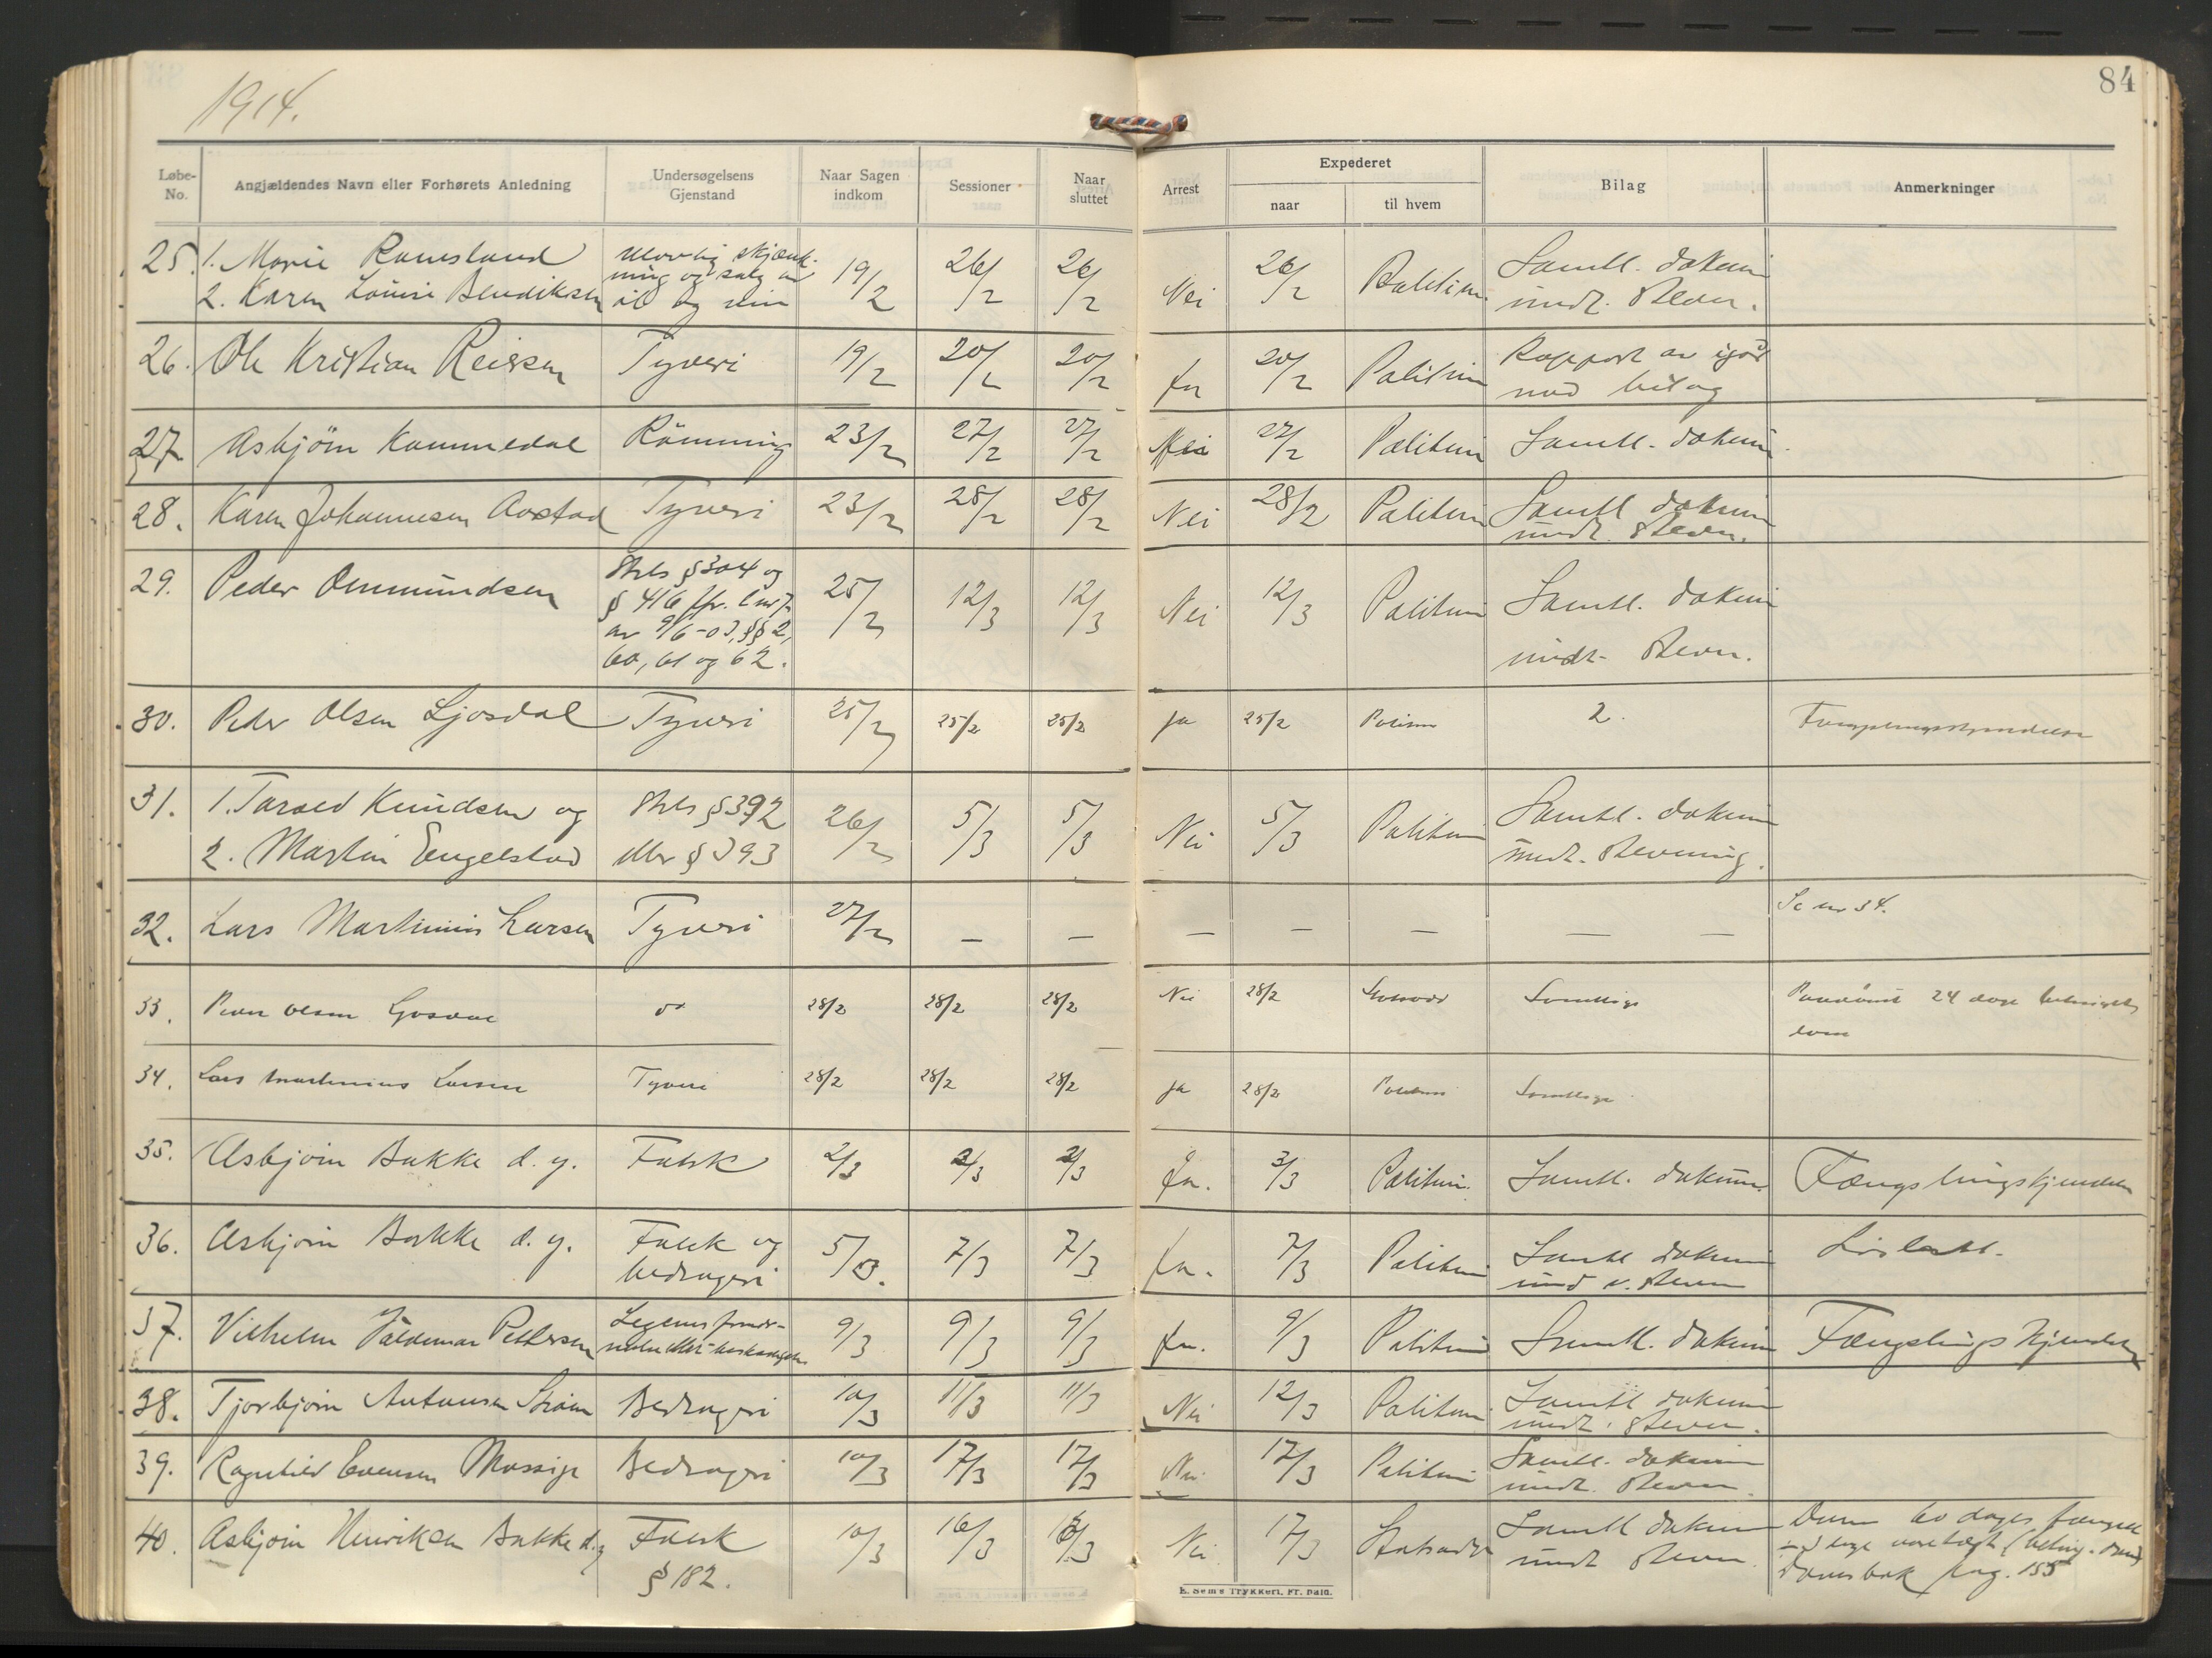 1914.
84
Løbe-No.
Angjældendes Navn eller Forhørets Anledning
Undersøgelsens Gjenstand
Naar Sagen indkom
Sessioner
Naar sluttet
Arrest
Expederet
naar
til hvem
Bilag
Anmerkninger
25. 1. Marie Ramsland ulovlig skjænk- 19/2 26/2 26/2 Nei 26/2 Politim. Samtl. dokum
2. Karen Louise Bendiksen ning og salg av øl og vin undt. stevn.
26. Ole Kristian Reiersen Tyveri 19/2 20/2 20/2 Ja 20/2 Politim Rapport av igår
med bilag
27 Asbjörn Kommedal Römming 23/2 27/2 27/2 Nei 27/2 Politim Samtl. dokum
28. Karen Johannesen Aastad Tyveri 23/2 28/2 28/2 Nei 28/2 Politim Samtl dokum
undt. stevn.
29. Peder Ommundsen Strls § 304 og 25/2 12/3 12/3 Nei 12/3 Politim Samtl. dokum
§ 416 jfr. l nr 7 undt. stevn.
av 9/6-03, §§ 2,
60, 61 og 62.
30. Peder Olsen Ljosdal Tyveri 25/2 25/2 25/2 Ja 25/2 Politim 2. Fængslingskjendelse
31. 1. Tarald Knudsen og Strls § 392 26/2 5/3 5/3 Nei 5/3 Politim Samtl. dokum
2. Martin Engelstad eller § 393 undt. stevning.
32. Lars Martinius Larsen Tyveri 27/2 — — — — — — — Se nr 34.
33. Peder Olsen Ljosdal do 28/2 28/2 28/2 Nei 28/2 Statsadv Samtlige 24 dage betinget
dom
34. Lars Martinius Larsen Tyveri 28/2 28/2 28/2 Ja 28/2 Politim Samtlige
35. Asbjörn Bakke d. y. Falsk 2/3 3/3 3/3 Ja. 3/3 Politim. Samtl. dokum. Fængslingskjendelse
36. Asbjörn Bakke d. y. Falsk og 5/3. 7/3 7/3 Ja. 7/3 Politim Samtl dokum Löslatt.
bedrageri stevn
37. Vilhelm Valdemar Pettersen Legems fornær- 9/3 9/3 9/3 Ja. 9/3 Politim Samtl. dokum Fængslingskjendelse
melse eller -beskadigelse
38. Tjorbjörn Antonsen Ström Bedrageri 10/3 11/3 11/3 Nei 12/3 Politim Samtl dokum
undt. stevn.
39. Ragnhild Evensen Mossige Bedrageri 10/3 17/3 17/3 Nei 17/3 Politim Samtl. dokum
undt. stevn.
40. Asbjörn Henriksen Bakke d.y Falsk 10/3 16/3 16/3 Nei 17/3 Statsadv Samtl dokum Dom 60 dages fængsel
§ 182. undt stevn. (beting. dom)
domsbok pag. 155
E. Sem's Trykkeri, Fr. hald.